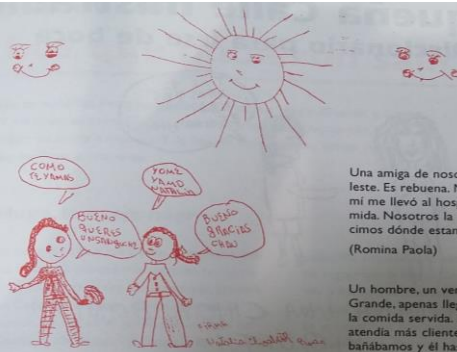 COMO
TE YAMAS
YO ME
YAMO
NATALIA
BUENO
QUERES
UN SANGUCHE
BUENO
GRACIAS
CHAU
FIRMA
Natalia
Una amiga de noso
leste. Es rebuena. N
mí me llevó al hos
mida. Nosotros la
cimos dónde estan
(Romina Paola)
Un hombre, un ver
Grande, apenas lleg
la comida servida.
atendía más cliente
bañábamos y él ha